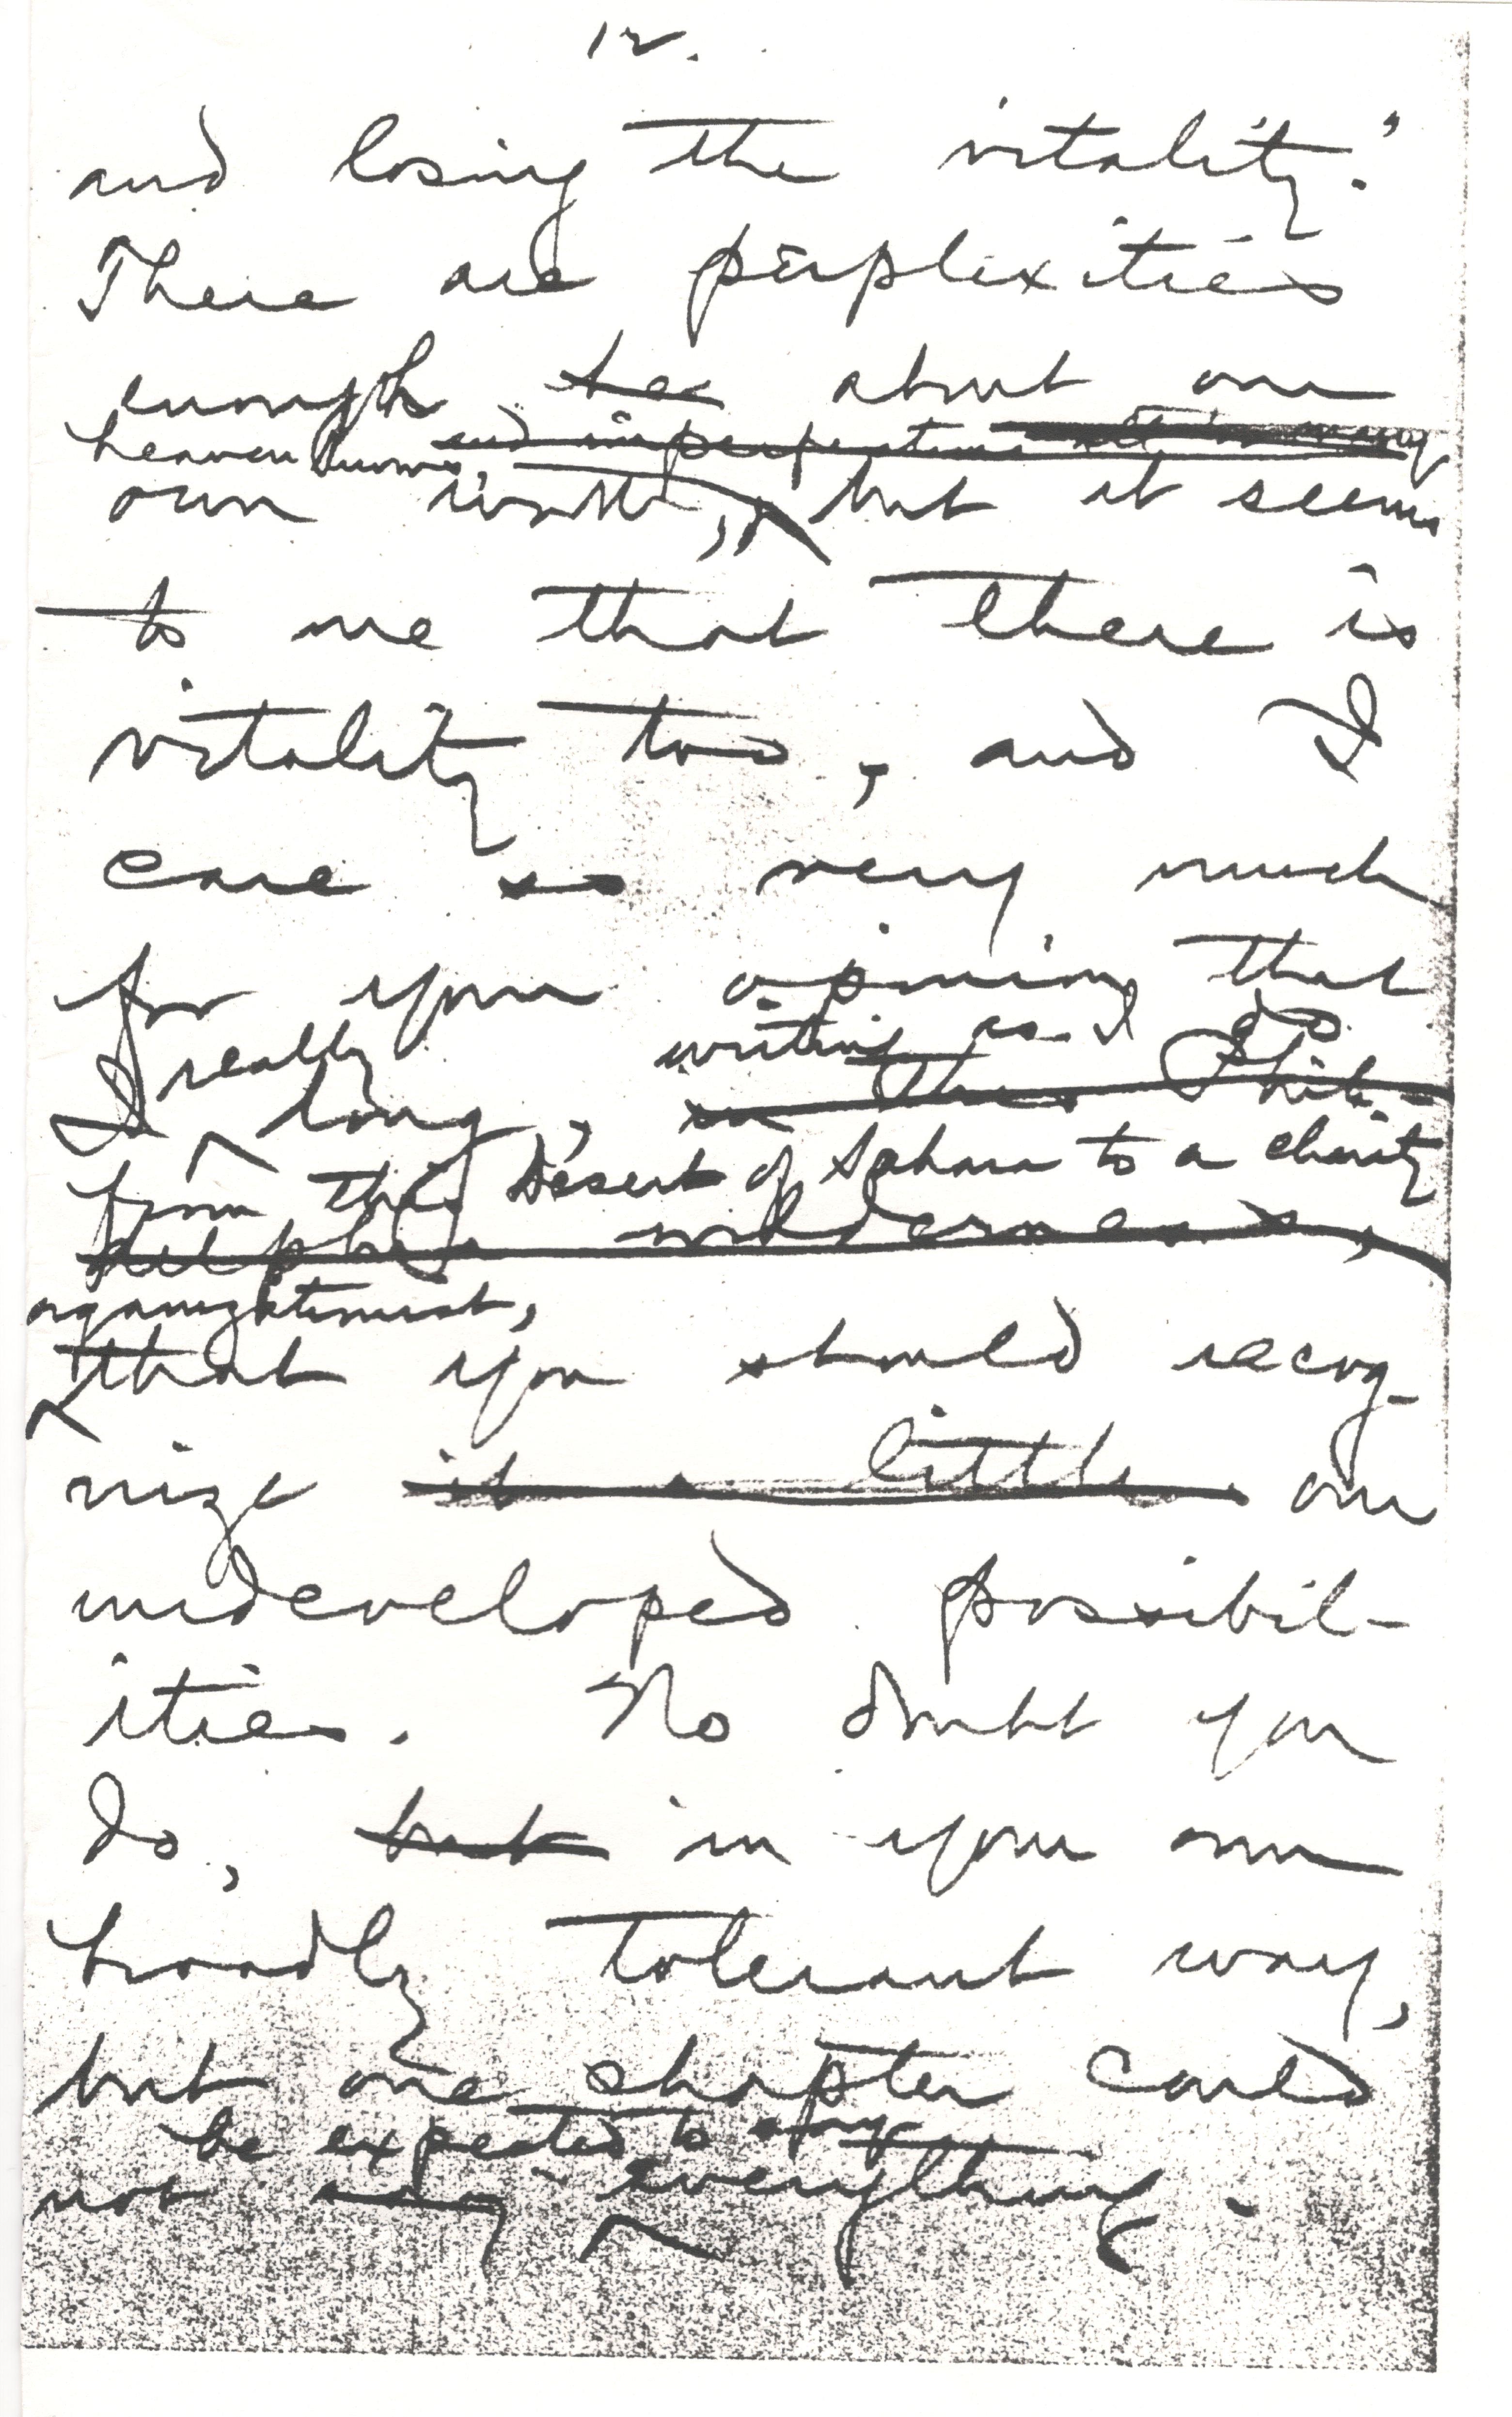 12.
and losing the vitality."
There are perplexities
enough about our
heaven knows,
own worth, but it seems
to me that there is
vitality too, and I
care so very much
for your opinion that
really writing as I do
I long, in this Phila-
from this Desert of Sahara to a charity
delphia wilderness,
organizationist,
that you should recog-
nize it a little our
undeveloped possibil-
ities. No doubt you
do, but in your own
broadly tolerant way,
but one chapter could
be expected to say
not say everything.